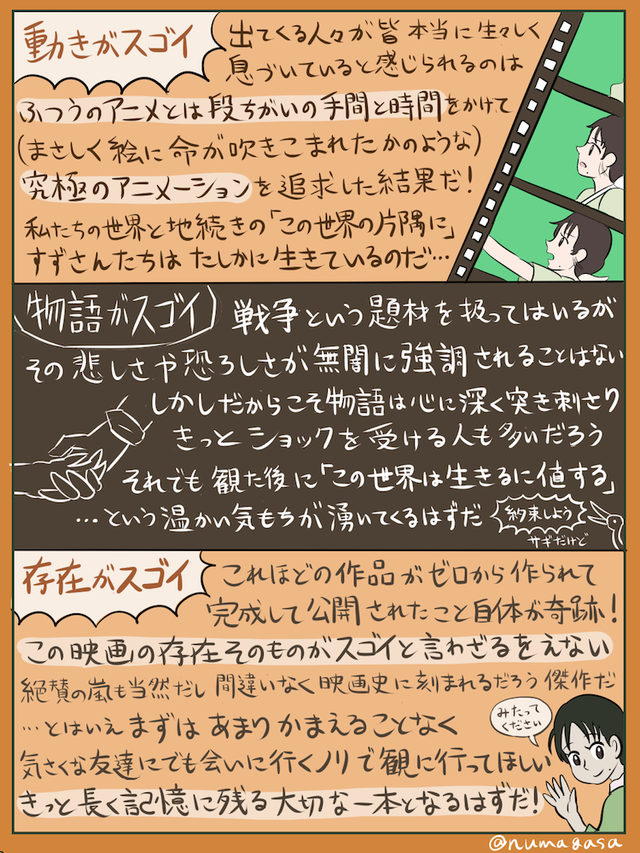 動きがスゴイ
出てくる人々が皆本当に生々しく
息づいていると感じられるのは
ふつうのアニメとは段ちがいの手間と時間をかけて
(まさしく絵に命が吹きこまれたかのような)
究極のアニメーションを追求した結果だ!
私たちの世界と地続きの「この世界の片隅に」
すずさんたちはたしかに生きているのだ…
物語がスゴイ
戦争という題材を扱ってはいるが
その悲しさや恐ろしさが無闇に強調されることはない
しかしだからこそ物語は心に深く突き刺さり
きっとショックを受ける人も多いだろう
それでも観た後に「この世界は生きるに値する」
…という温かい気もちが湧いてくるはずだ
約束しよう
サギだけど
存在がスゴイ
これほどの作品がゼロから作られて
完成して公開されたこと自体が奇跡!
この映画の存在そのものがスゴイと言わざるをえない
絶賛の嵐も当然だし間違いなく映画史に刻まれるだろう傑作だ
…とはいえまずはあまりかまえることなく
気さくな友達にでも会いに行くノリで観に行ってほしい
きっと長く記憶に残る大切な一本となるはずだ!
みたって
ください
@numagasa